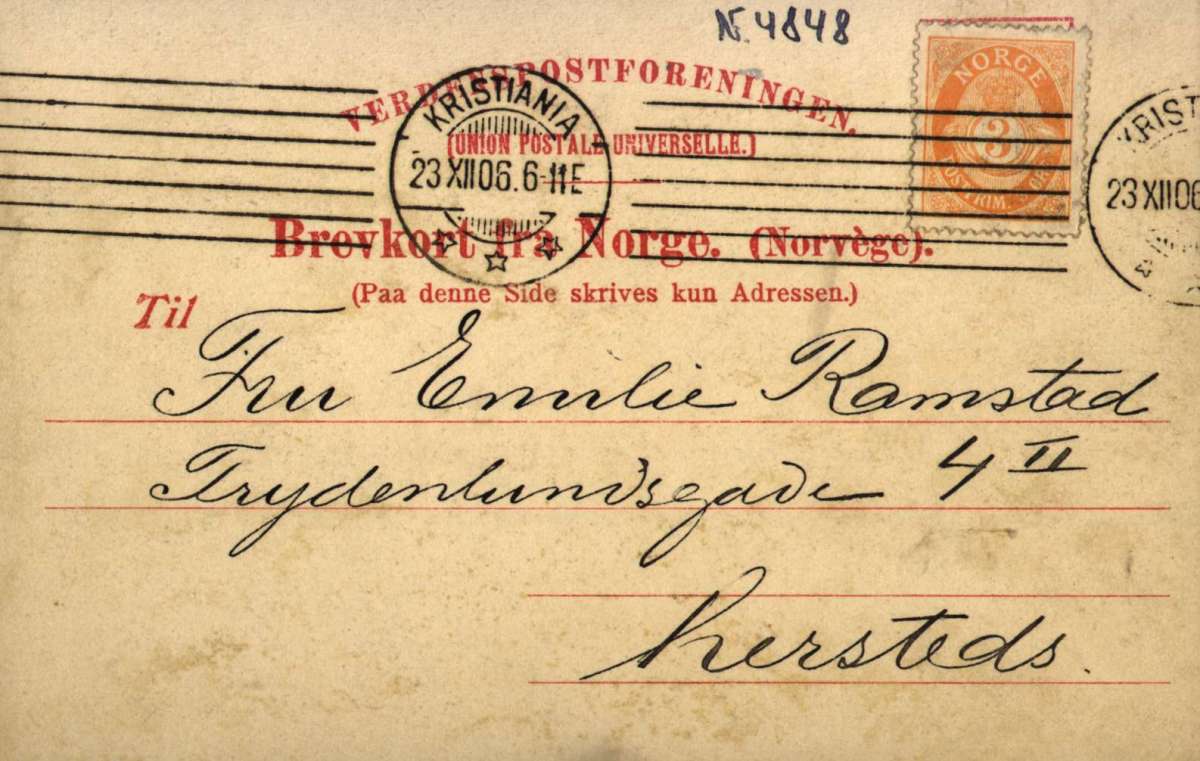 N. 4848
VERDENSPOSTFORENINGEN.
(UNION POSTALE UNIVERSELLE.)
NORGE
3
POSTFRIM
KRISTIANIA
23 XII 06. 6-11 E
KRIST
23 XII 06
Brevkort fra Norge. (Norvège).
(Paa denne Side skrives kun Adressen.)
Til
Fru Emilie Ramstad
Frydenlundsgade 4 II
hersteds.